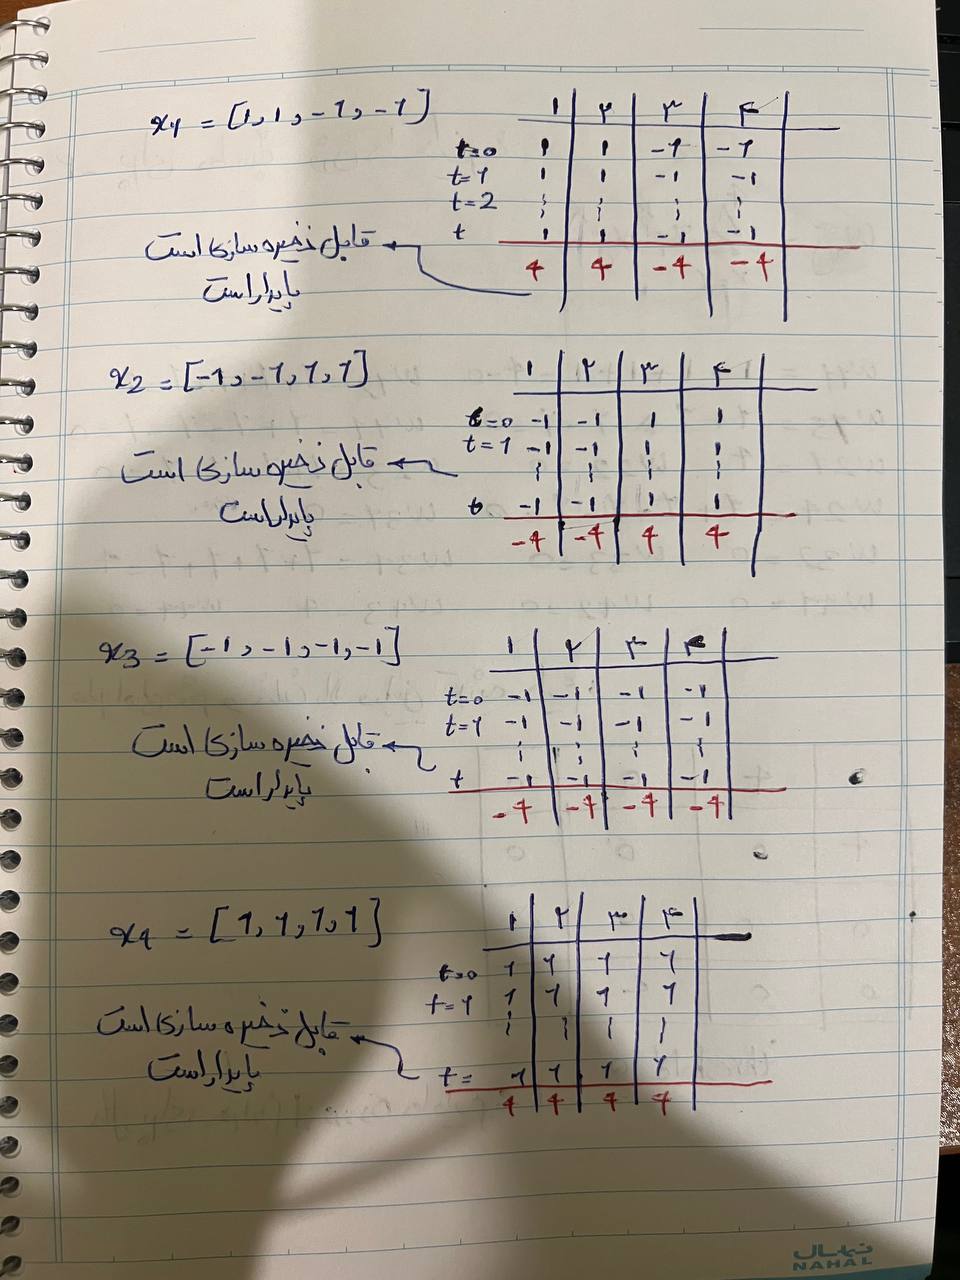 x1 = [1, 1, -1, -1]
۱ ۲ ۳ ۴
t=0 1 1 -1 -1
t=1 1 1 -1 -1
t=2 ⋮ ⋮ ⋮ ⋮
t 1 1 -1 -1
4 4 -4 -4
قابل ذخیره سازی است
پایدار است
x2 = [-1, -1, 1, 1]
۱ ۲ ۳ ۴
t=0 -1 -1 1 1
t=1 -1 -1 1 1
⋮ ⋮ ⋮ ⋮
t -1 -1 1 1
-4 -4 4 4
قابل ذخیره سازی است
پایدار است
x3 = [-1, -1, -1, -1]
۱ ۲ ۳ ۴
t=0 -1 -1 -1 -1
t=1 -1 -1 -1 -1
⋮ ⋮ ⋮ ⋮
t -1 -1 -1 -1
-4 -4 -4 -4
قابل ذخیره سازی است
پایدار است
x4 = [1, 1, 1, 1]
۱ ۲ ۳ ۴
t=0 1 1 1 1
t=1 1 1 1 1
⋮ ⋮ ⋮ ⋮
t= 1 1 1 1
4 4 4 4
قابل ذخیره سازی است
پایدار است
نهال
NAHAL